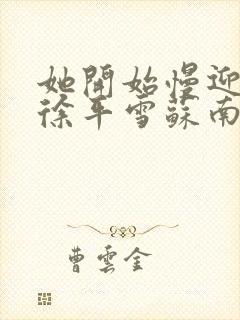 她開始慢迎
徐平雪蘇南
曹雲金